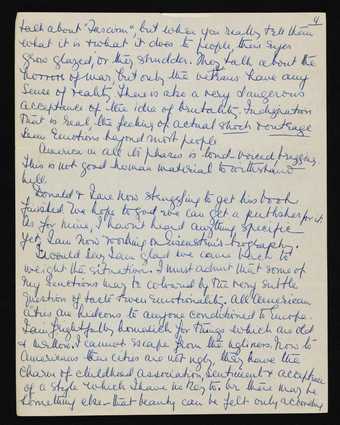 4
talk about "Fascism", but when you really tell them
what it is & what it does to people, their eyes
grow glazed, or they shudder. They talk about the
horror of war, but only the veterans have any
sense of reality. There is also a very dangerous
acceptance of the idea of brutality. Indignation
that is real, the feeling of actual shock & outrage
seem emotions beyond most people
America in all its phases is
This is not good human material to withstand
hell.
Donald & I are now struggling to get his book
finished. We hope to god we can get a publisher for it.
As for mine, I haven't heard anything specific
yet. I am now working on Eisenstein's biography.
I would say I am glad we came back to
weight the situation. I must admit that some of
my reactions may be coloured by the very subtle
question of taste & even emotionality. All American
cities are hideous to anyone conditioned to Europe.
I am frightfully homesick for things which are old
& mellow. I cannot escape from the ugliness. Now to
Americans their cities are not ugly, they have the
charm of childhood association, sentiment & acceptance
of a style which I have no key to. Or there may be
something else - that beauty can be felt only according